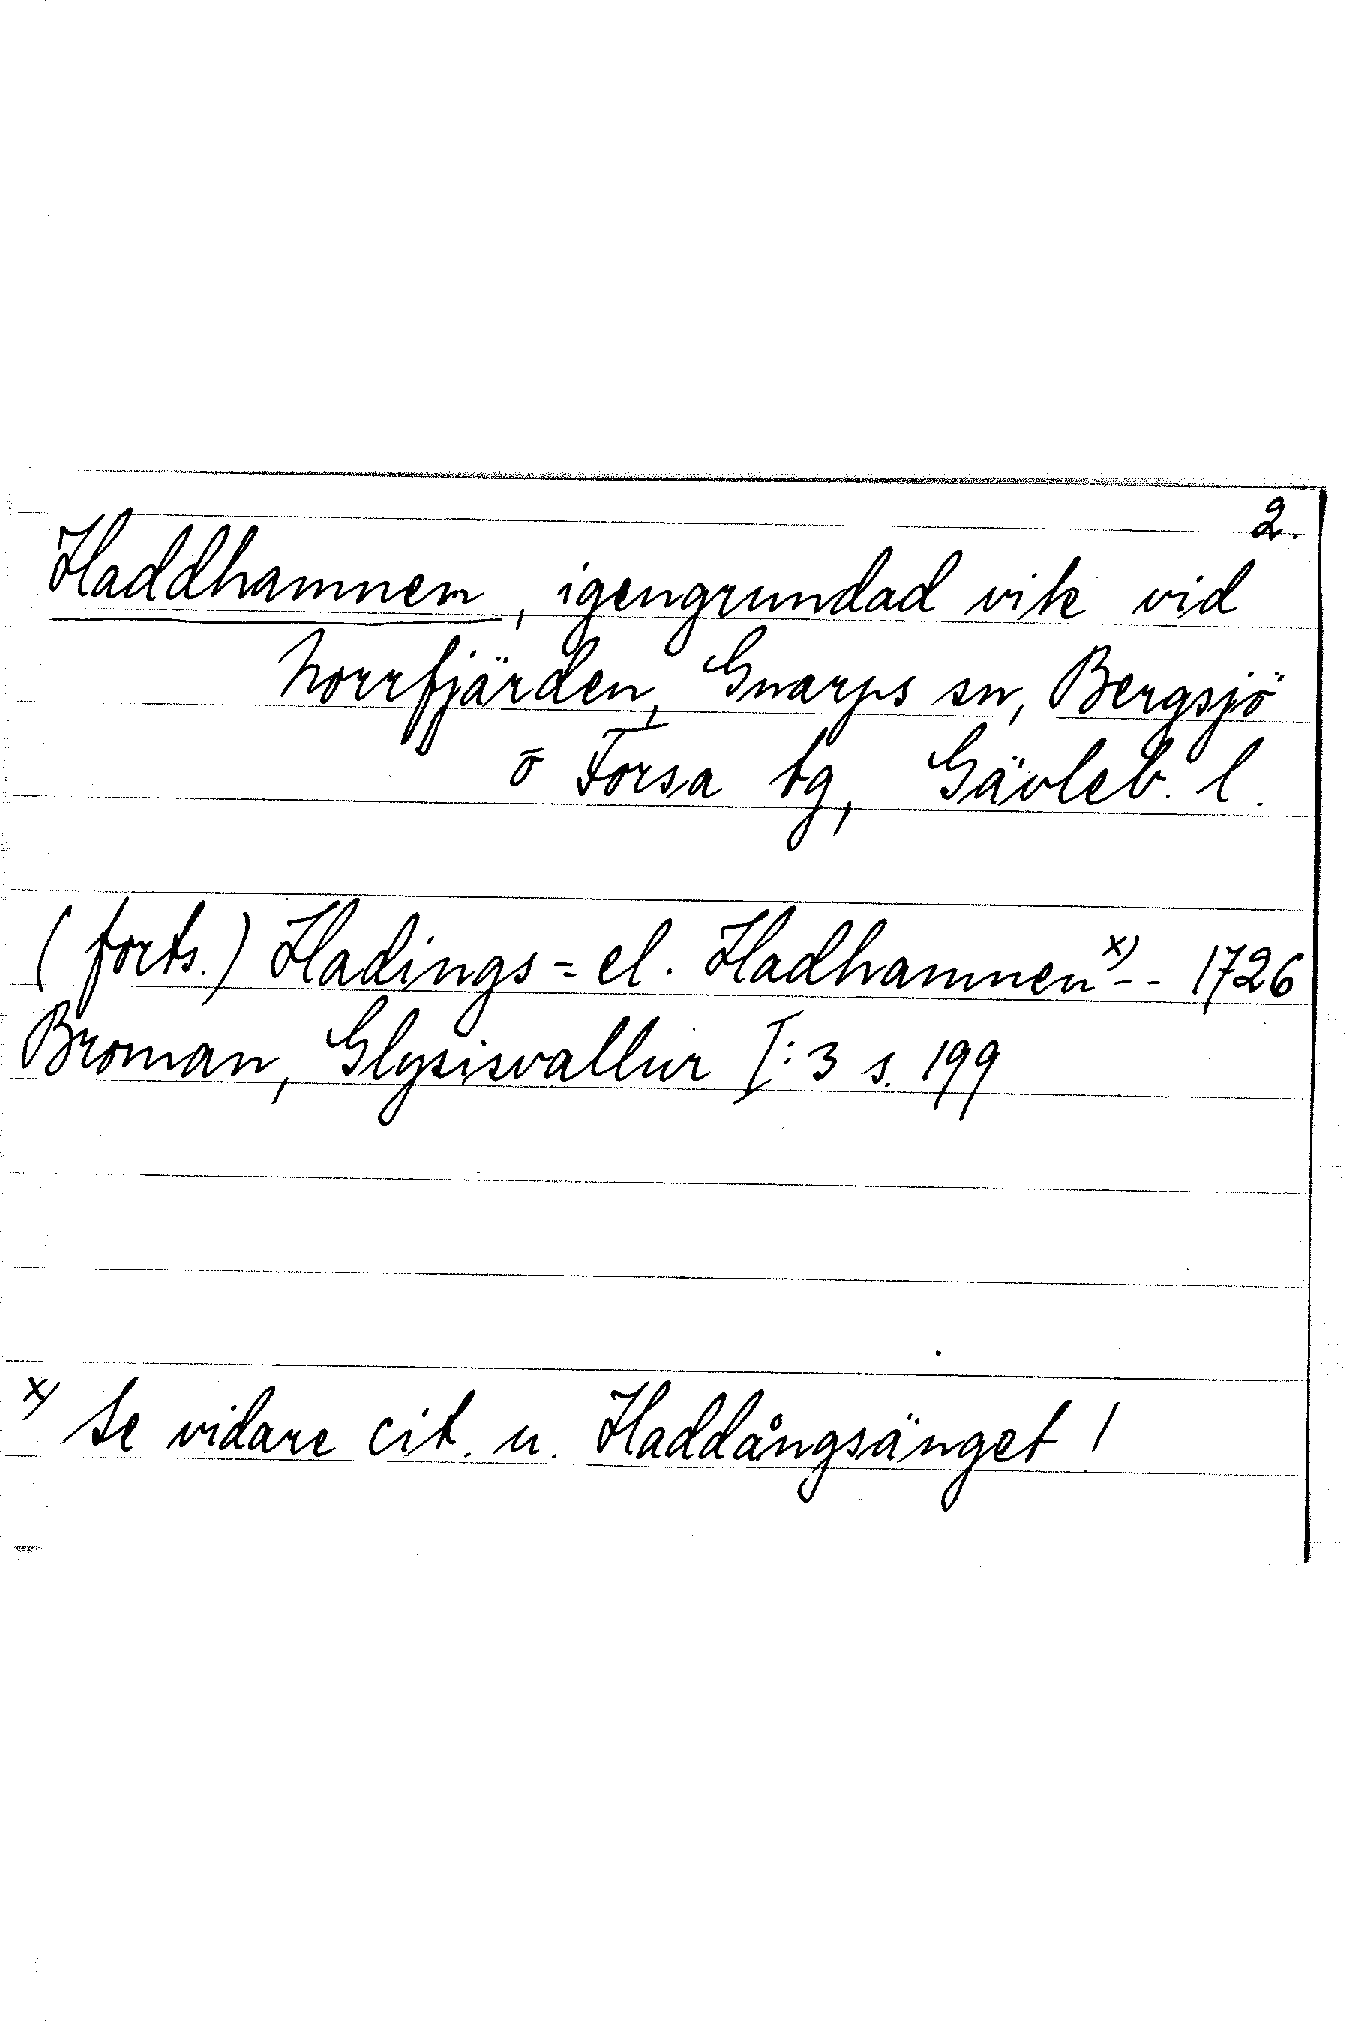 2.
Haddhamnen, igengrundad vik vid
Norrfjärden, Gnarps sn, Bergsjö
o Forsa tg, Gävleb. l.
(forts.) Hadings= el. Hadhamnen x) - - 1726
Broman, Glysisvallur I:3 s. 199
x) Se vidare cit. u. Haddångsänget!